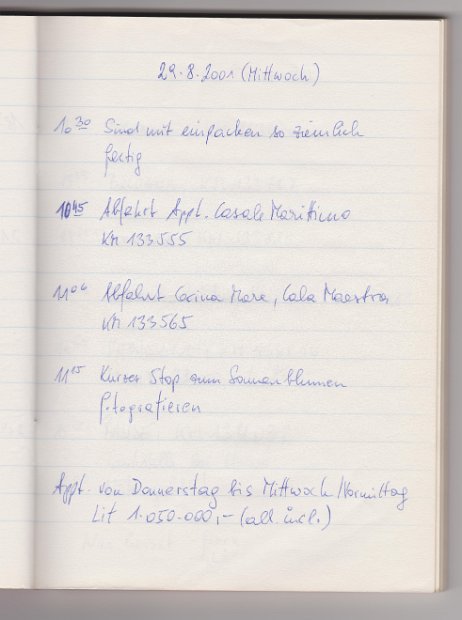 29.8.2001 (Mittwoch)
10 30 Sind mit einpacken so ziemlich
fertig
10 45 Abfahrt Appt. Casale Marittimo
KM 133555
11 04 Abfahrt Marina Mare, Cala Maestra
KM 133565
11 15 Kurzer Stop zum Sonnenblumen
fotografieren
Appt. von Donnerstag bis Mittwoch/Vormittag
Lit 1.050.000,- (all. incl.)